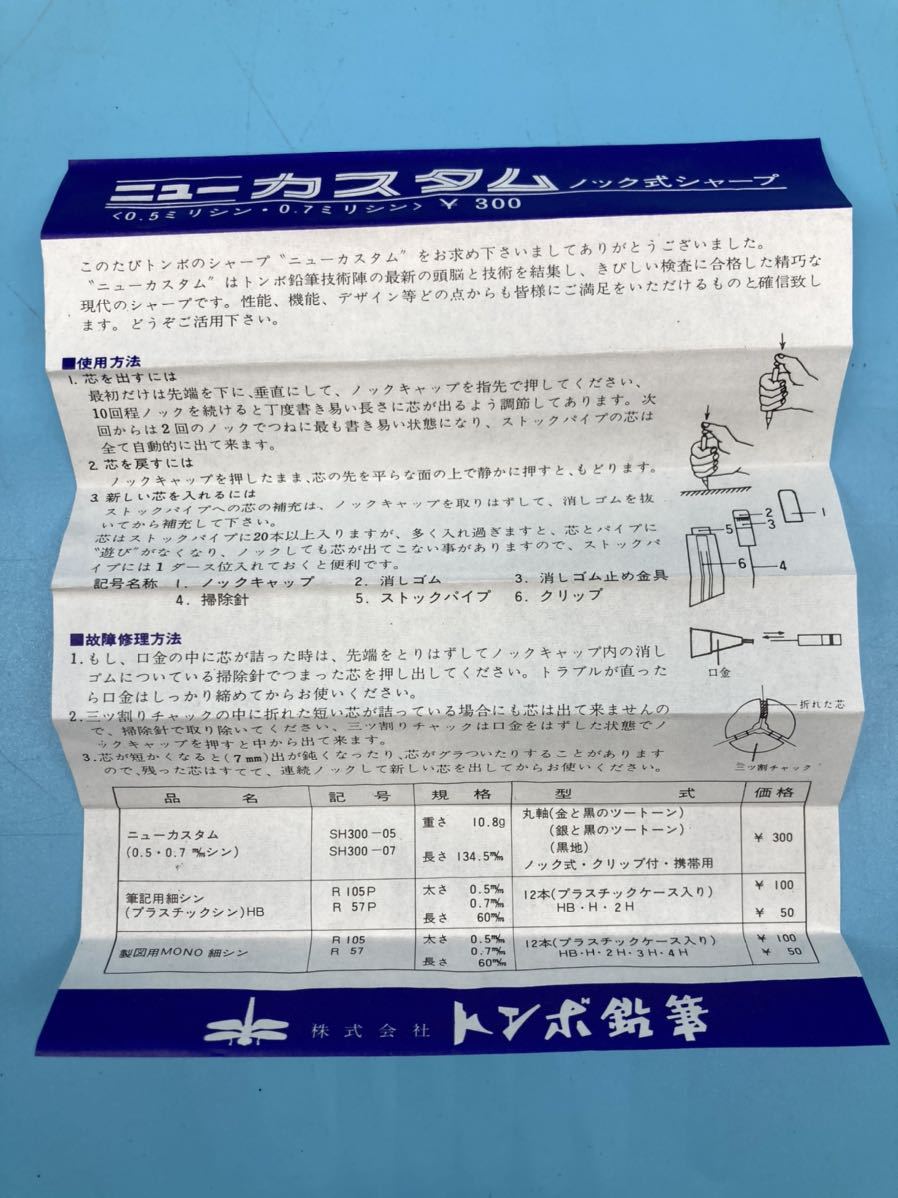 ニューカスタム ノック式シャープ
〈0.5ミリシン・0.7ミリシン〉 ¥ 300
このたびトンボのシャープ〝ニューカスタム〟をお求め下さいましてありがとうございました。
〝ニューカスタム〟はトンボ鉛筆技術陣の最新の頭脳と技術を結集し、きびしい検査に合格した精巧な
現代のシャープです。性能、機能、デザイン等どの点からも皆様にご満足をいただけるものと確信致し
ます。どうぞご活用下さい。
■使用方法
1. 芯を出すには
最初だけは先端を下に、垂直にして、ノックキャップを指先で押してください、
10回程ノックを続けると丁度書き易い長さに芯が出るよう調節してあります。次
回からは2回のノックでつねに最も書き易い状態になり、ストックパイプの芯は
全て自動的に出て来ます。
2. 芯を戻すには
ノックキャップを押したまま、芯の先を平らな面の上で静かに押すと、もどります。
3. 新しい芯を入れるには
ストックパイプへの芯の補充は、ノックキャップを取りはずして、消しゴムを抜
いてから補充して下さい。
芯はストックパイプに20本以上入りますが、多く入れ過ぎますと、芯とパイプに
〝遊び〟がなくなり、ノックしても芯が出てこない事がありますので、ストックパ
イプには1ダース位入れておくと便利です。
記号名称 1. ノックキャップ 2. 消しゴム 3. 消しゴム止め金具
4. 掃除針 5. ストックパイプ 6. クリップ
5
6
2
3
1
4
■故障修理方法
1. もし、口金の中に芯が詰った時は、先端をとりはずしてノックキャップ内の消し
ゴムについている掃除針でつまった芯を押し出してください。トラブルが直った
ら口金はしっかり締めてからお使いください。
2. 三ツ割りチャックの中に折れた短い芯が詰っている場合にも芯は出て来ませんの
で、掃除針で取り除いてください、三ツ割りチャックは口金をはずした状態でノ
ックキャップを押すと中から出て来ます。
3. 芯が短かくなると(7mm)出が鈍くなったり、芯がグラついたりすることがあります
ので、残った芯はすてて、連続ノックして新しい芯を出してからお使いください。
口金
折れた芯
三ツ割チャック
品名 記号 規格 型式 価格
ニューカスタム
(0.5・0.7 m/mシン)
SH300-05
SH300-07
重さ 10.8g
長さ 134.5m/m
丸軸(金と黒のツートーン)
(銀と黒のツートーン)
(黒地)
ノック式・クリップ付・携帯用
¥ 300
筆記用細シン
(プラスチックシン)HB
R 105P
R 57P
太さ 0.5m/m
0.7m/m
長さ 60m/m
12本(プラスチックケース入り)
HB・H・2H
¥ 100
¥ 50
製図用MONO細シン
R 105
R 57
太さ 0.5m/m
0.7m/m
長さ 60m/m
12本(プラスチックケース入り)
HB・H・2H・3H・4H
¥ 100
¥ 50
株式会社 トンボ鉛筆